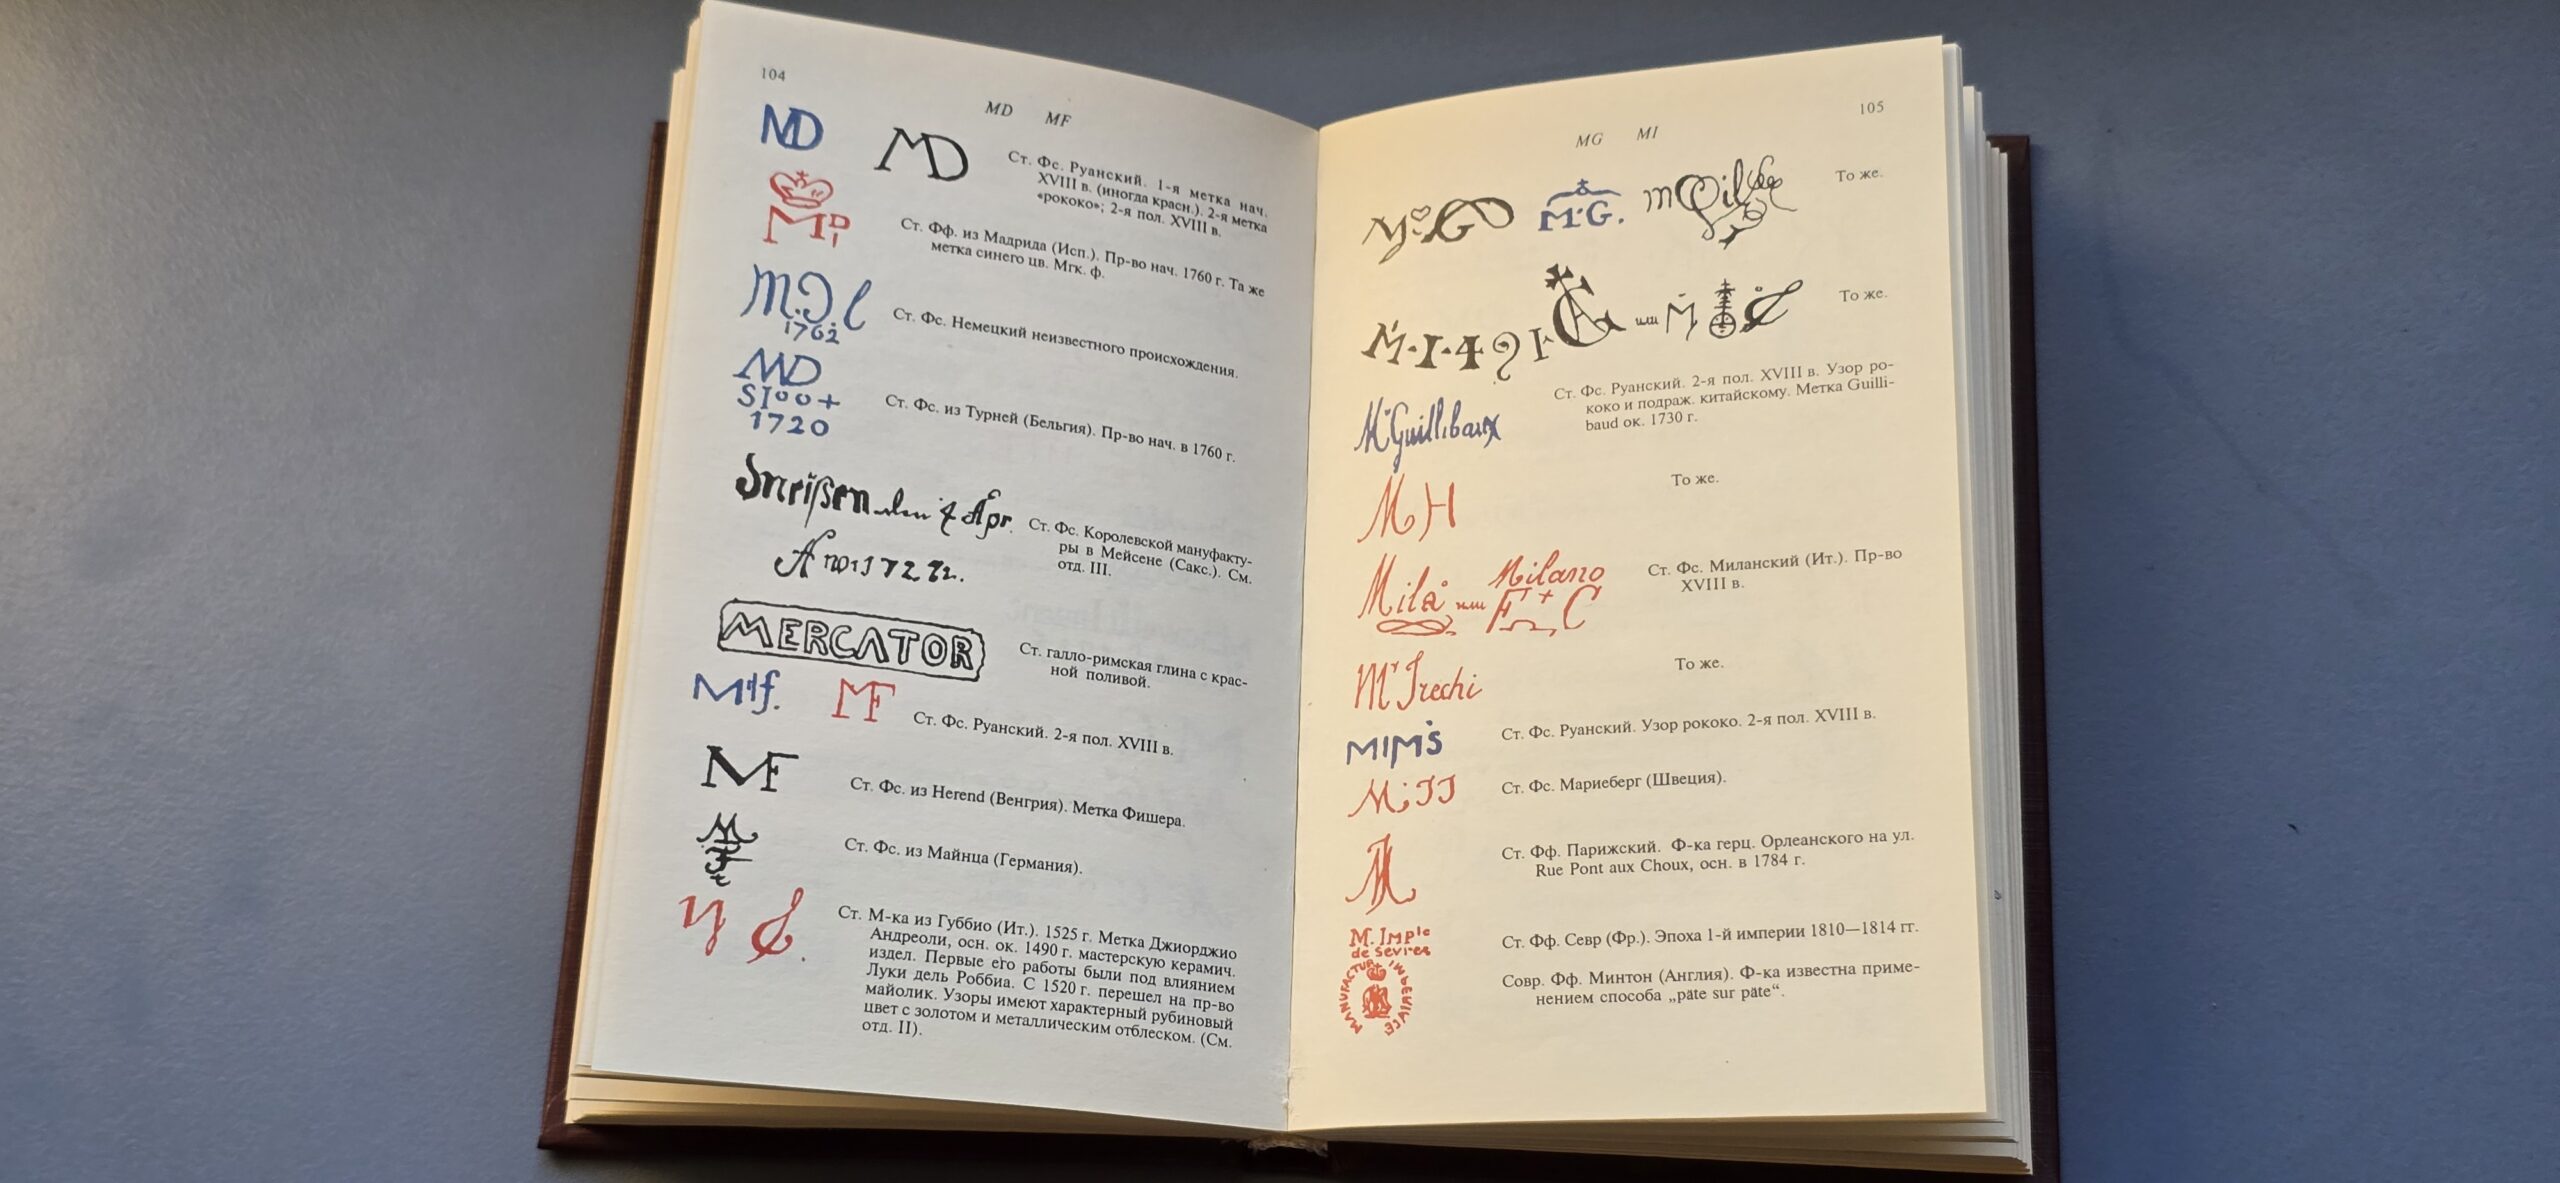 104
MD MF
MD MD
Ст. Фс. Руанский. 1-я метка нач.
XVIII в. (иногда красн.). 2-я метка
«рококо»; 2-я пол. XVIII в.
Ст. Фф. из Мадрида (Исп.). Пр-во нач. 1760 г. Та же
метка синего цв. Мгк. ф.
1762
Ст. Фс. Немецкий неизвестного происхождения.
MD
1720
Ст. Фс. из Турней (Бельгия). Пр-во нач. в 1760 г.
Ст. Фс. Королевской мануфакту-
ры в Мейсене (Сакс.). См.
отд. III.
MERCATOR
Ст. галло-римская глина с крас-
ной поливой.
MF
Ст. Фс. Руанский. 2-я пол. XVIII в.
MF
Ст. Фс. из Herend (Венгрия). Метка Фишера.
Ст. Фс. из Майнца (Германия).
Ст. М-ка из Губбио (Ит.). 1525 г. Метка Джиорджио
Андреоли, осн. ок. 1490 г. мастерскую керамич.
издел. Первые его работы были под влиянием
Луки дель Роббиа. С 1520 г. перешел на пр-во
майолик. Узоры имеют характерный рубиновый
цвет с золотом и металлическим отблеском. (См.
отд. II).
105
MG MI
M·G.
То же.
или
То же.
Ст. Фс. Руанский. 2-я пол. XVIII в. Узор ро-
коко и подраж. китайскому. Метка Guilli-
baud ок. 1730 г.
MH
То же.
Milano
Mila или
Ст. Фс. Миланский (Ит.). Пр-во
XVIII в.
То же.
MIMS
Ст. Фс. Руанский. Узор рококо. 2-я пол. XVIII в.
Ст. Фс. Мариеберг (Швеция).
Ст. Фф. Парижский. Ф-ка герц. Орлеанского на ул.
Rue Pont aux Choux, осн. в 1784 г.
M. Imple
de Sevres
Ст. Фф. Севр (Фр.). Эпоха 1-й империи 1810—1814 гг.
Совр. Фф. Минтон (Англия). Ф-ка известна приме-
нением способа „päte sur päte“.